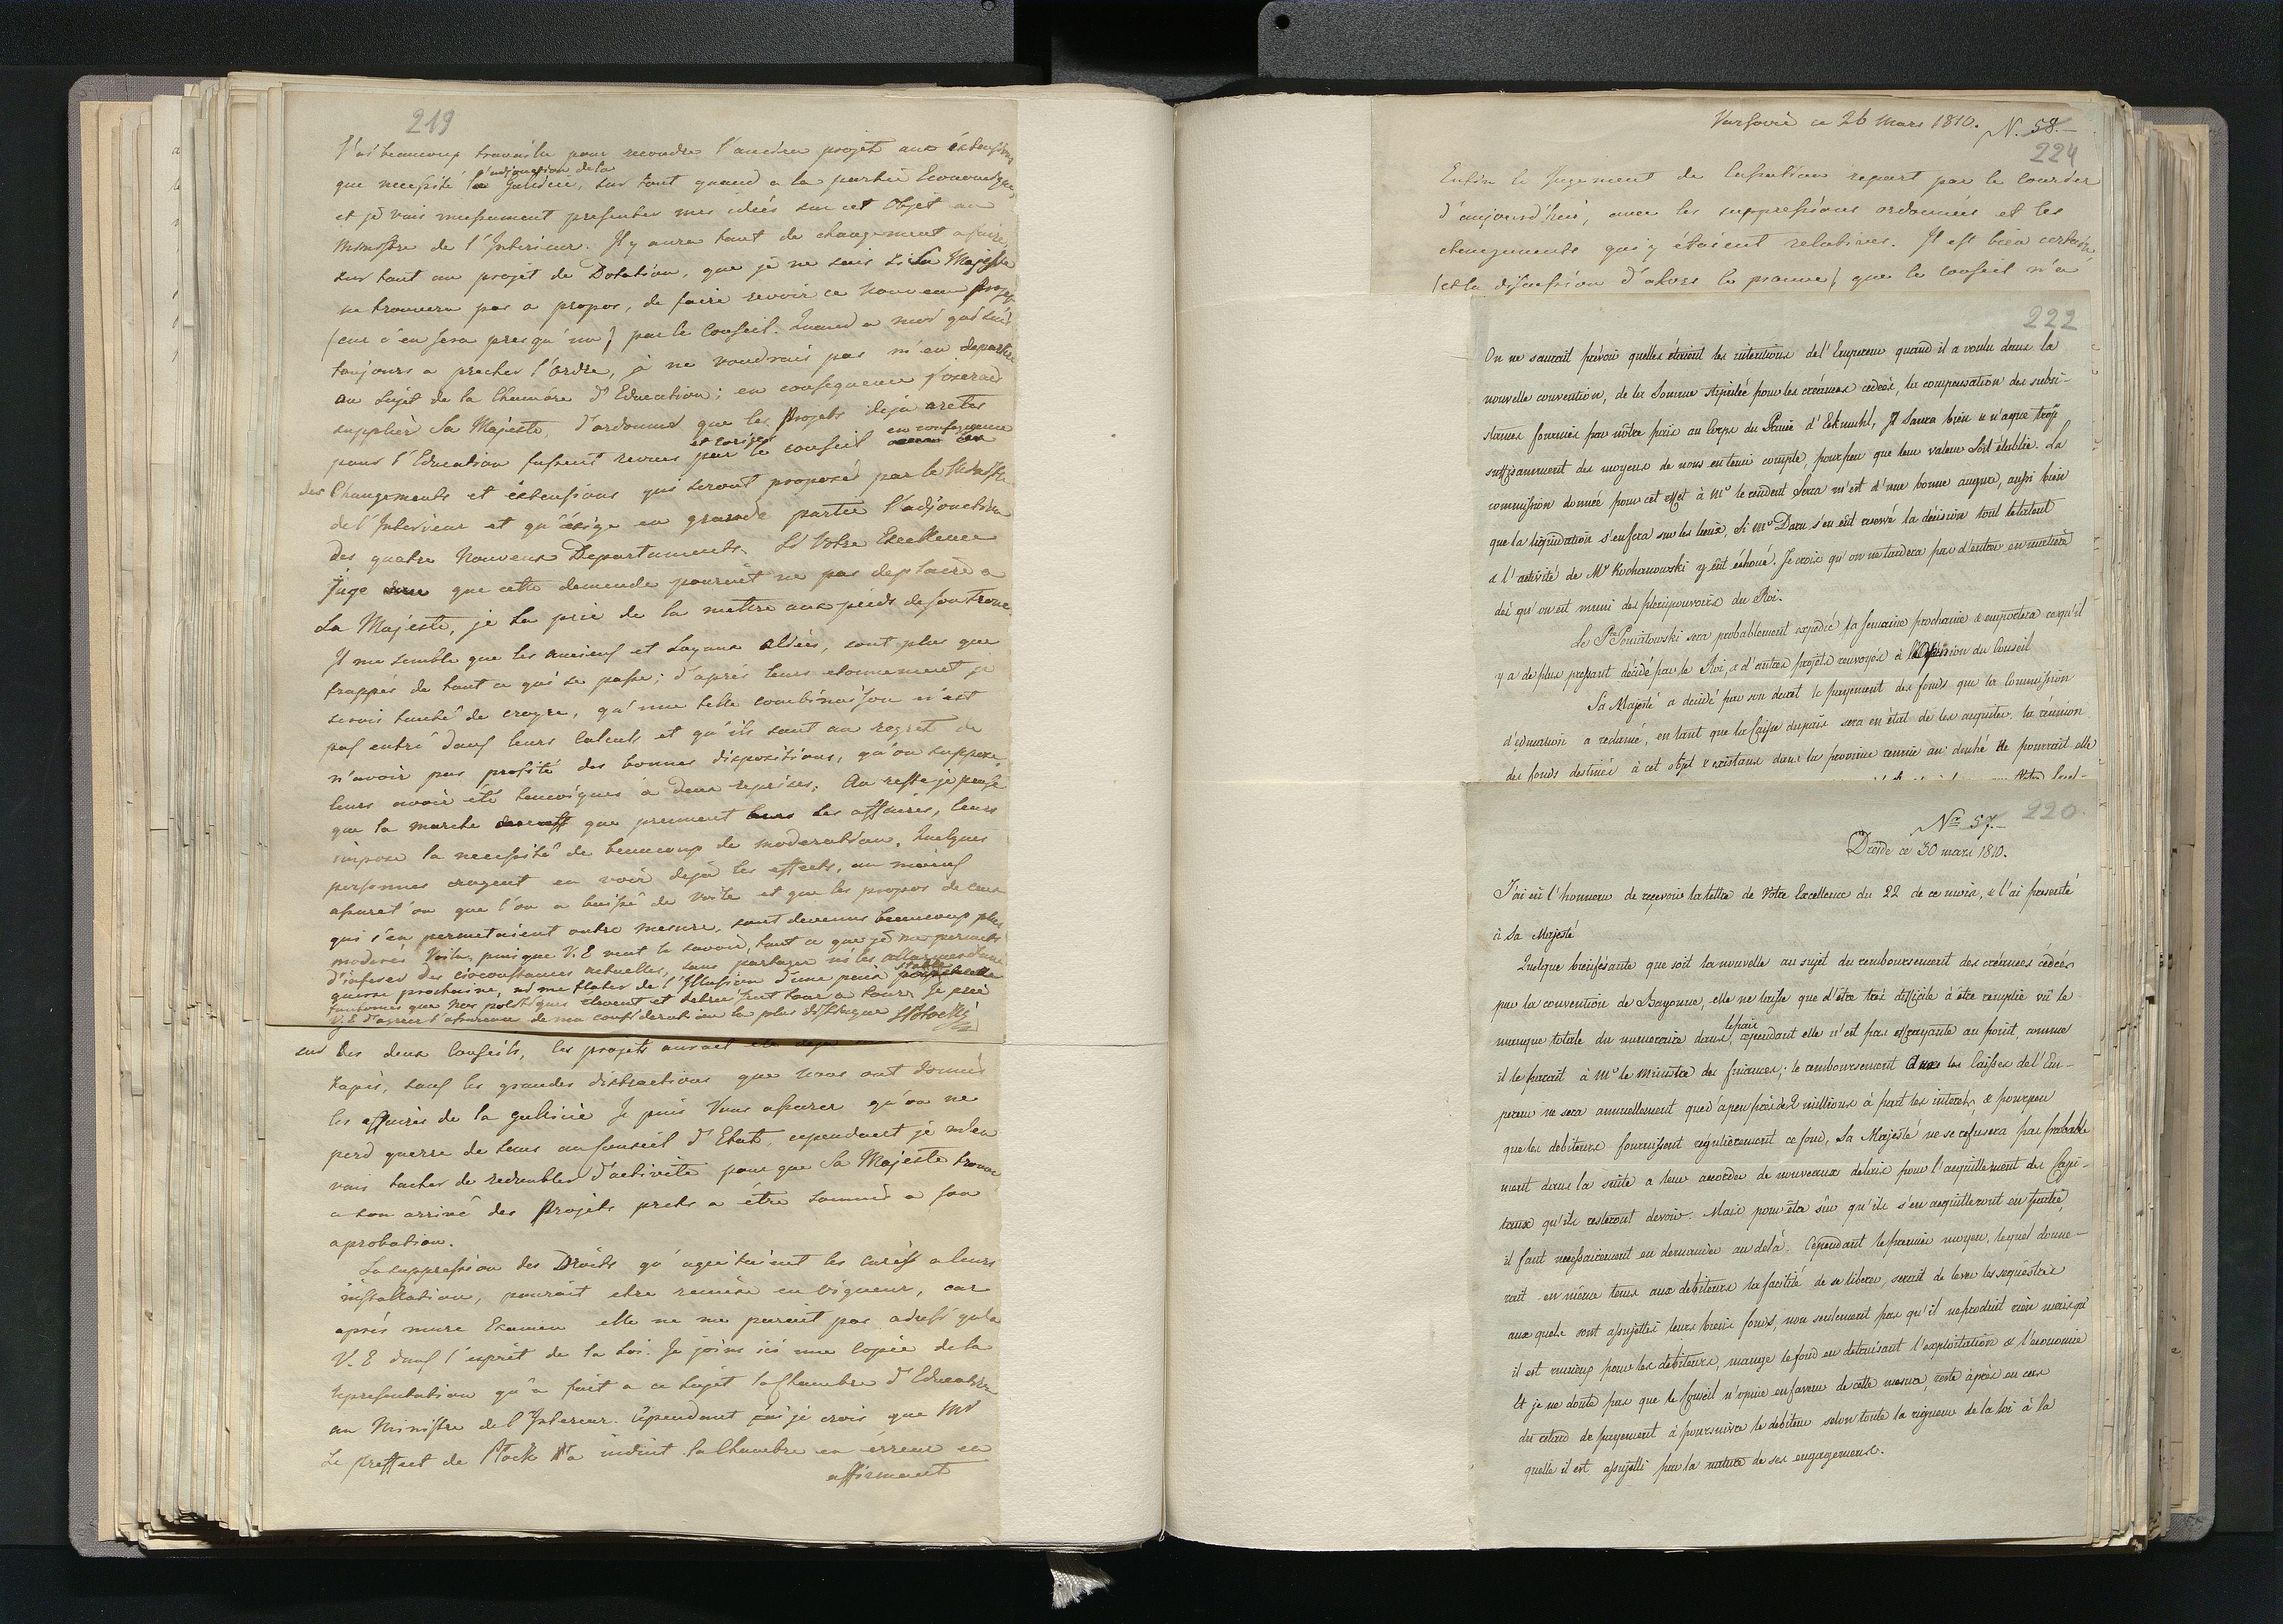 219
J'ai beaucoup travaillé pour recoudre l'ancien projet aux éxtensions
que necessité l'adjonction de la Galicie, sur tout quand a la partie Economique,
et je vais incessament presenter mes idées sur cet Objet au
Ministre de l'Interieur. Il y aura tant de changement a faire,
sur tout au projet de Dotation, que je ne sais si Sa Majesté
ne trouvera pas a propos, de faire revoir ce nouveau projet
(car c'en sera presqu'un) par le Conseil. Quand a moi qui suis
toujours a precher l'ordre, je ne voudrais pas m'en departir
au sujet de la Chambre d'Education; en consequence j'oserais
supplier Sa Majesté, d'ordonner que les Projets deja aretés
pour l'Education fussent revus et corigés par le conseil en consequence
des Changements et éxtensions qui seront proposé par le Ministre
de l'Interieur et qu'éxige en grande partie l'adjonction
des quatre Nouveaux Departements. Si Votre Excellence
juge que cette demende pourait ne pas deplaire a
Sa Majesté, je La prie de la metre aux pieds de son trone.
Il me semble que les anciens et Loyaux alliés, sont plus que
frappés de tout ce qui se passe; d'après leurs etonnement je
serois tenté de croyre, qu'une telle combinaison n'est
pas entré dans leurs Calculs et qu'ils sont au regret de
n'avoir pas profité des bonnes dispositions, qu'on suppose
leurs avoir été temoignés a deux reprises. Au reste je pense
que la marche que prennent les affaires, leurs
impose la necessité de beaucoup de moderation. Quelques
personnes croyent en voir dejà les effects, au moins
assuret'on que l'on a baissé de voile et que les propos de ceux
qui s'en permetaient outre mesure, sont devenus beaucoup plus
moderés. Voila, puisque V. E veut le savoir, tout ce que je me permets
d'inferer des circonstances actuelles, sans partager ni les allarmes d'une
guerre prochaine, ni me flater de l'Illusion d'une paix stable
fantomes que nos politiques elevent et detruisent tour a tour. Je prie
V. E d'agreer l'assurance de ma consideration la plus distingué SPotocki
sur les deux Conseils, les projets aurait été deja
tapés, sauf les grandes distractions que nous ont donnés
les affaires de la Galicie Je puis Vous assurer qu'on ne
perd guerre de tems au Conseil d'Etat, cependant je m'en
vais tacher de redoubler d'activité pour que Sa Majesté trouve
a son arrivé des Projets prets a être soumis a son
aprobation.
La suppression des Droits qu'aquitaient les curés a leurs
installation, pourait etre remise en vigueur, car
après mure Examen elle ne me parait pas adressé qu'a
V. E dans l'esprit de la Loi. Je joins ici une Copie de la
representation qu'a fait a ce sujet la Chambre d'Education
au Ministre de l'Interieur. Cependant je crois que Mr
Le preffect de Plock a induit la Chambre en érreur en
affirmant
Varsovie ce 26 Mars 1810. N. 58.
224
Enfin le Jugement de Cassation repart par le Courier
d'aujourd'hui, avec les suppressions ordonnées et les
changements qui y étaient relatives. Il est bien certain
(et la discussion d'alors le prouve) que le conseil n'a
222
On ne saurait prévoir quelles étaient les intentions de l'Empereur quand il a voulu dans la
nouvelle convention, de la Somme stipulée pour les créances cedées, la compensation des subsi-
stances fournies par nôtre païs au Corps du Prince d'Ekmuhl, Il Saura bien & n'a que trop
suffisamment des moyens de nous en tenir compte, pour peu que leur valeur Soit établie. La
commission donnée pour cet effet à Mr le resident Serra m'est d'une bonne augure, aussi bien
que la liquidation s'en fera sur les lieux. Si Mr Daru s'en eût reservé la décision tout le talent
& l'activité de Mr Kochanowski y eût échoué. Je crois qu'on ne tardera pas d'entrer en matiere
dès qu'on est muni des pleinpouvoirs du Roi.
Le Pce Poniatowski sera probablement expedié la Semaine prochaine & emportera ce qu'il
y a de plus pressant décidé par le Roi, & d'autres projets renvoyés à l'Opinion du Conseil
Sa Majesté a decidé par son decret le payement des fonds que la Commission
d'éducation a reclamé, en tant que la Caisse du païs sera en état de les acquiter. la réunion
des fonds destinés à cet objet & existans dans la province reunie au duché Ne pourrait elle
Nro 57. 220.
Dresde ce 30 mars 1810.
J'ai eû l'honneur de reçevoir la lettre de Votre Excellence du 22 de ce mois, & l'ai presenté
à Sa Majesté
Quelque bienfésante que soit la nouvelle au sujet du remboursement des créances cédées
par la convention de Bayonne, elle ne laisse que d'être trés difficile à être remplie vû le
manque totale du numeraire dans le païs, cependant elle n'est pas effrayante au point, comme
il le parait à Mr le Ministre des finances; le remboursement dans les Caisses de l'Em-
pereur ne sera annuellement que d'apeu près de 2 millions à part les interets, & pourpeu
que les debiteurs fournissent regulièrement ce fond, Sa Majesté ne se refusera pas probable
ment dans la suite a leur accorder de nouveaux delais pour l'acquittement des Capi-
taux qu'ils resteront devoir. Mais pour être sûr qu'ils s'en acquitteront en partie,
il faut necessairement en demander au delà. Cependant le premier moyen, lequel donne-
rait en même tems aux debiteurs la facilité de se liberer, serait de lever les sequestres
aux quels sont assujettis leurs biens fonds, non seulement pas qu'il ne produit rien mais qu'
il est ruineux pour les debiteurs, mange le fond en detruisant l'exploitation & l'economie
Et je ne doute pas que le Conseil n'opine en faveur de cette mesure, reste après en cas
du retard de payement à poursuivre le debiteur selon toute la rigueur de la loi à la
quelle il est assujetti par la nature de ses engagemens.